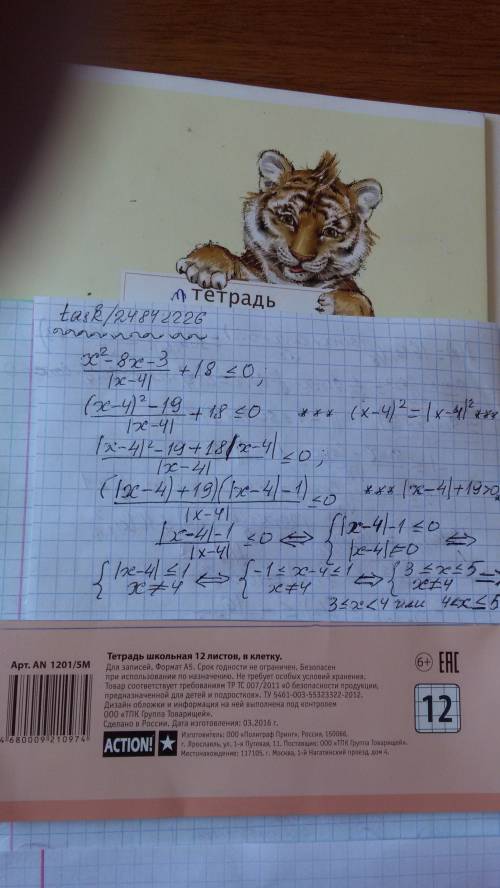 тетрадь
task/24842226
x²-8x-3/|x-4| +18 ≤0;
(x-4)²-19/|x-4| +18 ≤0 *** (x-4)²=|x-4|² ***
|x-4|²-19+18|x-4|/|x-4| ≤0;
(|x-4|+19)(|x-4|-1)/|x-4| ≤0 *** |x-4|+19>0
|x-4|-1/|x-4| ≤0 ⇔ {|x-4|-1≤0 |x-4|≠0 ⇔
{|x-4|≤1 x≠4 ⇔ {-1≤x-4≤1 x≠4 ⇔ {3≤x≤5 x≠4 ⇒
3≤x<4 или 4<x≤5
Арт. AN 1201/5M
Тетрадь школьная 12 листов, в клетку.
Для записей. Формат А5. Срок годности не ограничен. Безопасен
при использовании по назначению. Не требует особых условий хранения.
Товар соответствует требованиям ТР ТС 007/2011 «О безопасности продукции,
предназначенной для детей и подростков». ТУ 5461-003-55323322-2012.
Дизайн обложки и информация на ней выполнена под контролем
ООО «ТПК Группа Товарищей».
Сделано в России. Дата изготовления: 03.2016 г.
6+ EAC
12
4680009210974
ACTION!
Изготовитель: ООО «Полиграф Принт», Россия, 150066,
г. Ярославль, ул. 1-я Путевая, 11. Поставщик: ООО «ТПК Группа Товарищей».
Местонахождение: 117105, г. Москва, 1-й Нагатинский проезд, дом 4.